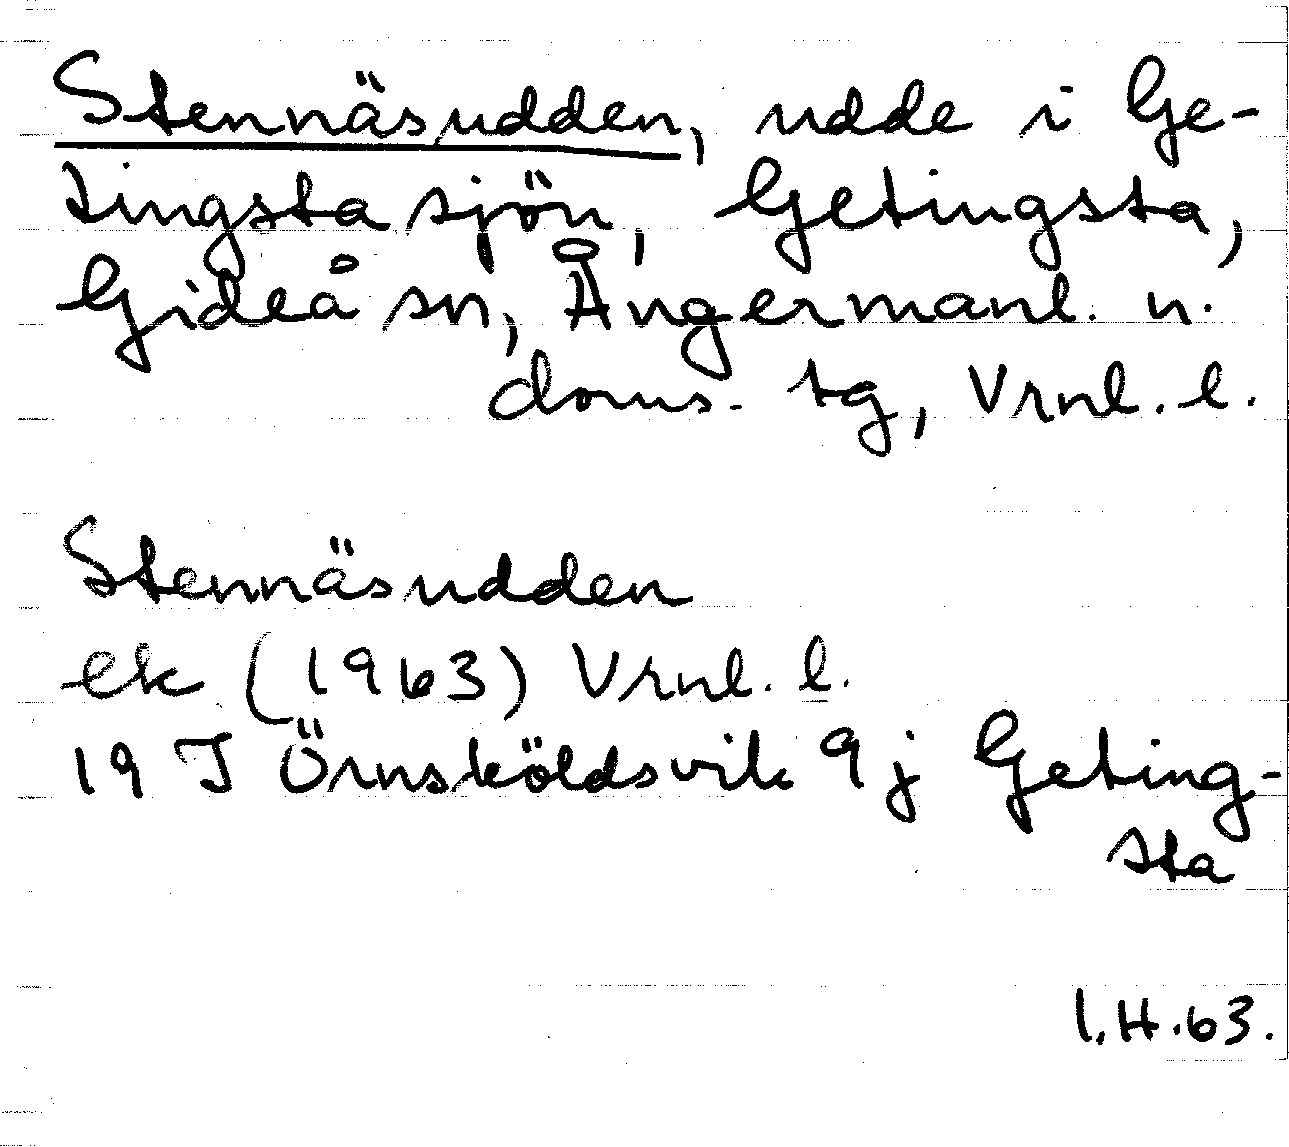 Stennäsudden, udde i Ge-
tingstasjön, Getingsta,
Gideå sn, Ångermanl. n.
doms. tg, Vrnl. l.
Stennäsudden
ek (1963) Vrnl. l.
19 J Örnsköldsvik 9 j Geting-
sta
I.H.63.